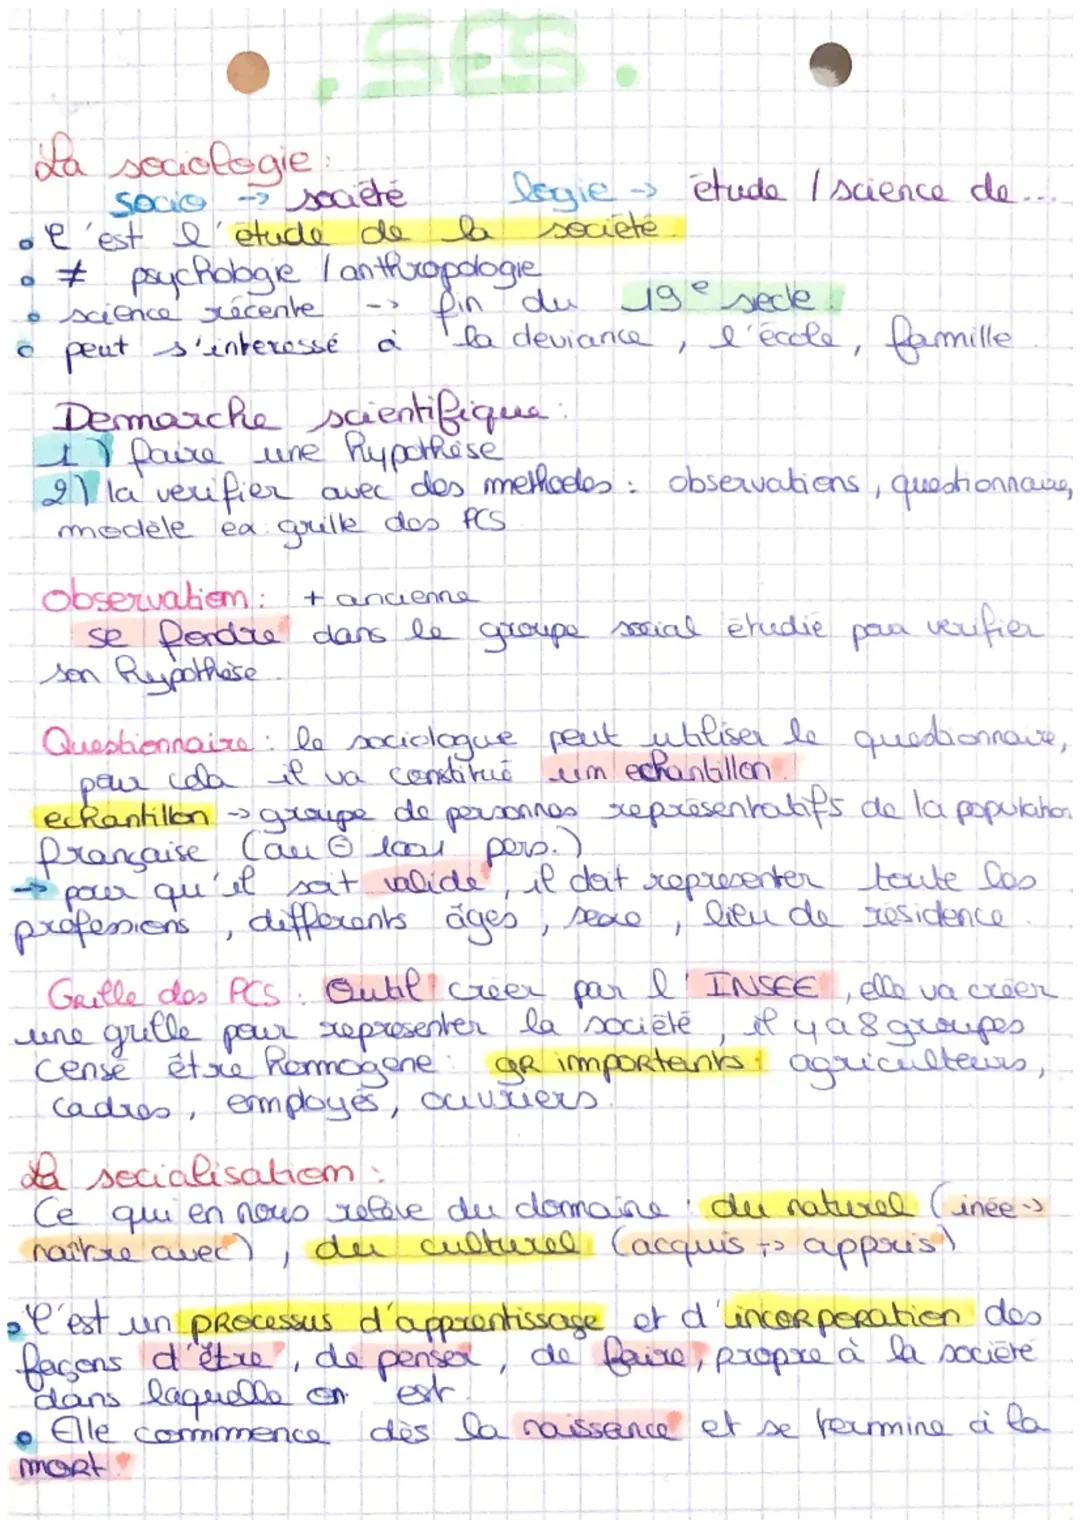 .SES.
La sociologie :
socio -> société logie -> étude / science de ...
• C'est l'étude de la société.
• ≠ psychologie / anthropologie
• science récente -> fin du 19e siecle.
• peut s'interessé à la deviance, l'école, famille.
Demarche scientifique :
1) faire une hypothèse
2) la verifier avec des methodes : observations, questionnaire,
modèle ex grille des PCS
Observation : + ancienne
se fondre dans le groupe social étudié pour verifier
son hypothèse.
Questionnaire : le sociologue peut utiliser le questionnaire,
pour cela il va constitué un echantillon.
echantillon -> groupe de personnes représentatifs de la population
française (au ⊖ 1001 pers.)
-> pour qu'il soit valide, il doit representer toute les
professions, differents âges, sexe, lieu de résidence.
Grille des PCS : Outil créer par l'INSEE, elle va créer
une grille pour representer la société, il y a 8 groupes
censé être homogene : gR importants : agriculteurs,
cadres, employés, ouvriers.
La socialisation :
Ce qui en nous relève du domaine : du naturel (inée ->
naitre avec), du culturel (acquis -> appris)
• C'est un processus d'apprentissage et d'incorporation des
façons d'être, de penser, de faire, propre à la société
dans laquelle on est.
• Elle commmence dès la naissance et se termine à la
mort